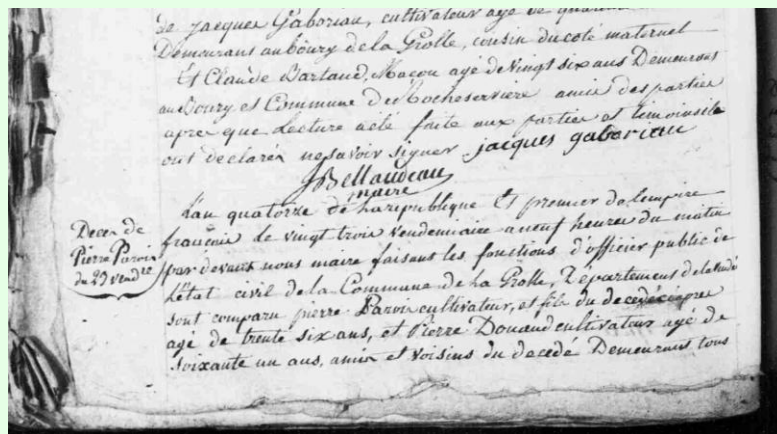 de jacques Gaboriau, cultivateur agé de
Demeurant au boury de la Grolle, cousin du coté maternel
Et Claude Bartaud, Macon agé de vingt six ans Demeurant
au Boury et Commune de Rocheserviere amis des partie
apres que Lecture a eté faite aux partie et temoins ils
ont declarés ne savoir signer jacques gaboriau
JBellaudeau
maire
Decen de
Pierre Parois
du 23 vendre
L'an quatorze de la republique Et premier de lempire
français le vingt trois vendemiaire a neuf heures du matin
par devant nous maire faisant les fonctions d'officier public de
l'état civil de la Commune de la Grolle, Département de la
sont comparu pierre Parois cultivateur, et fils du decedé
agé de trente six ans, et Pierre Douaud cultivateur agé de
soixante un ans, amis et voisins du decedé Demeurant tous